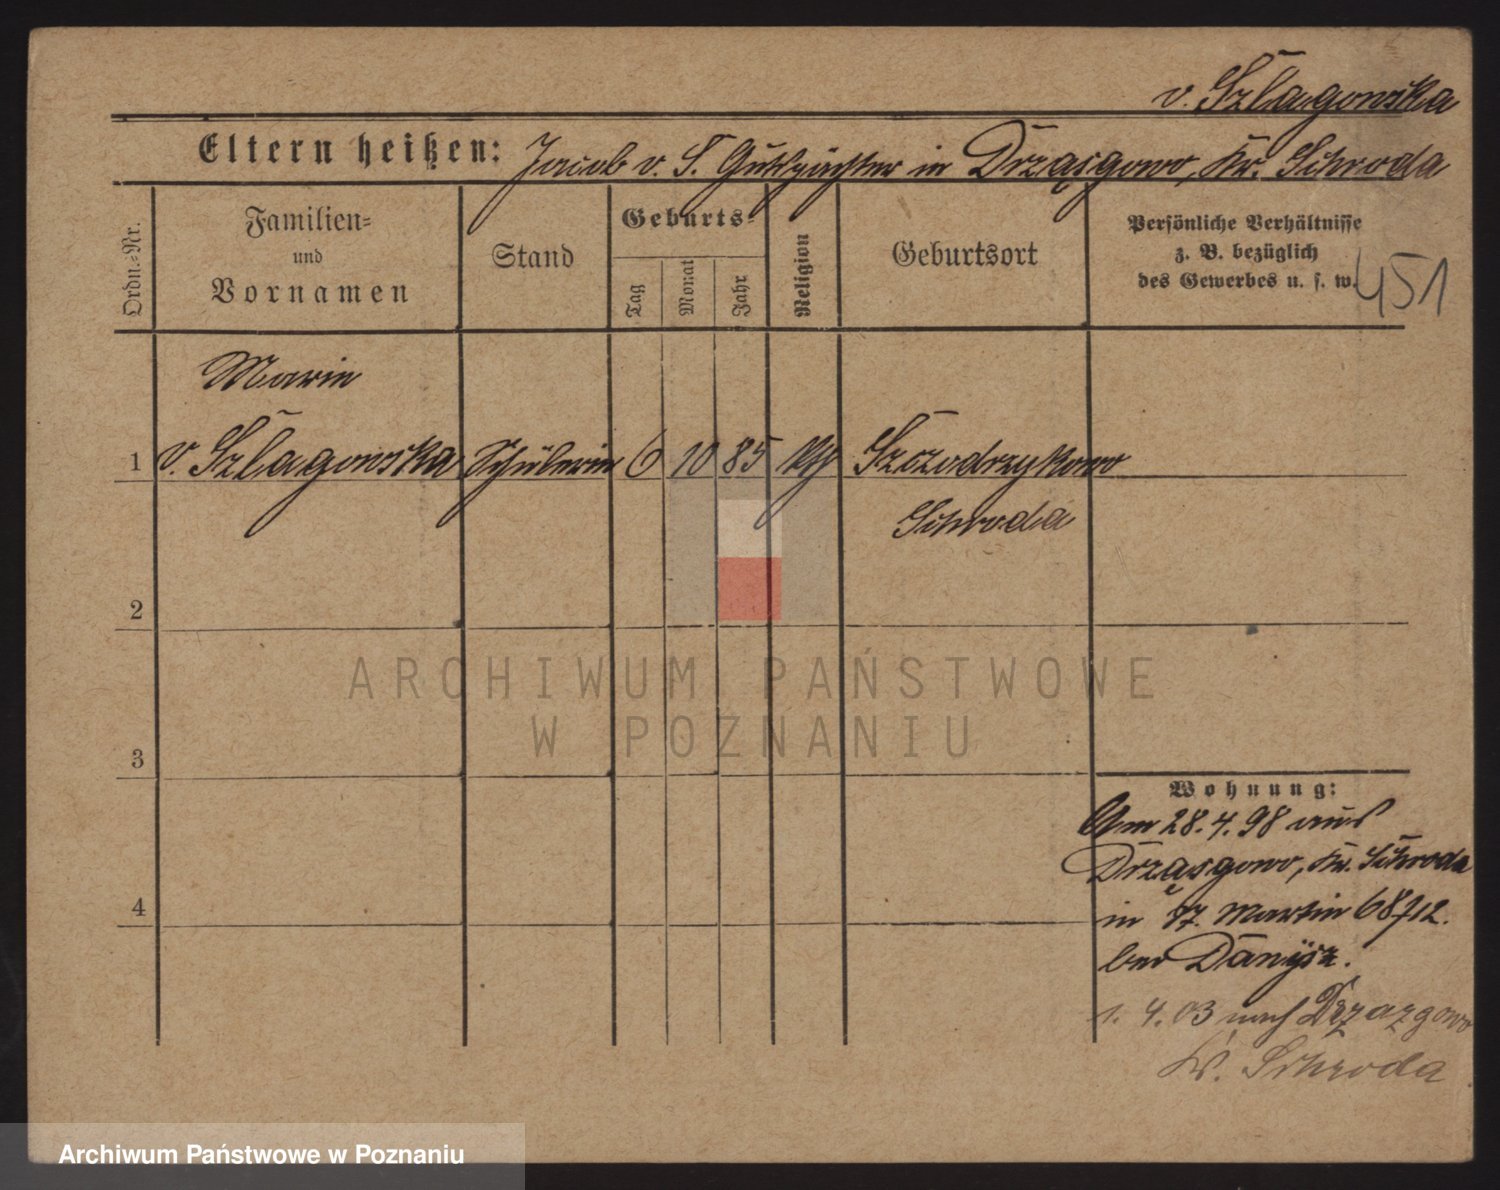 v. Szlagowska
Eltern heißen: Jacob v. S. Gutspächter in Drząsgowo, Kr. Schroda
Ordn.=Nr.
Familien=
und
Vornamen
Stand
Geburts=
Tag
Monat
Jahr
Religion
Geburtsort
Persönliche Verhältnisse
z. B. bezüglich
des Gewerbes u. s. w.
451
Marie
1 v. Szlagowska Schülerin 6 10 85 kth Szczodrzykowo
Schroda
2
ARCHIWUM PAŃSTWOWE
W POZNANIU
3
Wohnung:
Am 28.4.98 aus
Drząsgowo, Kr. Schroda
4
in St. Martin 68/12.
bei Danysz.
1. 4. 03 nach Drzązgowo
Kr. Schroda
Archiwum Państwowe w Poznaniu